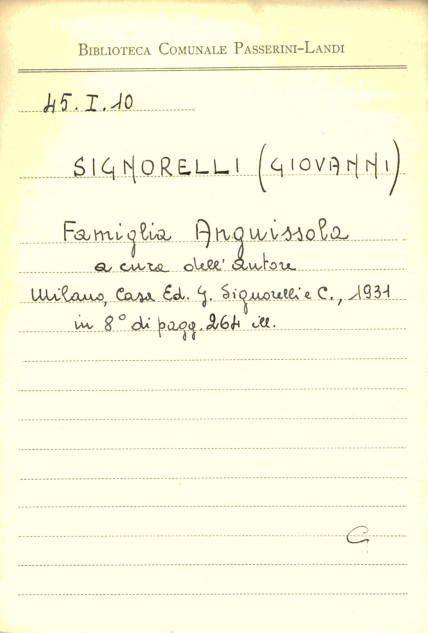 BIBLIOTECA COMUNALE PASSERINI-LANDI
45.I.10
SIGNORELLI (GIOVANNI)
Famiglia Anguissola
a cura dell'autore
Milano, Casa Ed. G. Signorelli e C., 1931
in 8° di pagg. 264 ill.
G